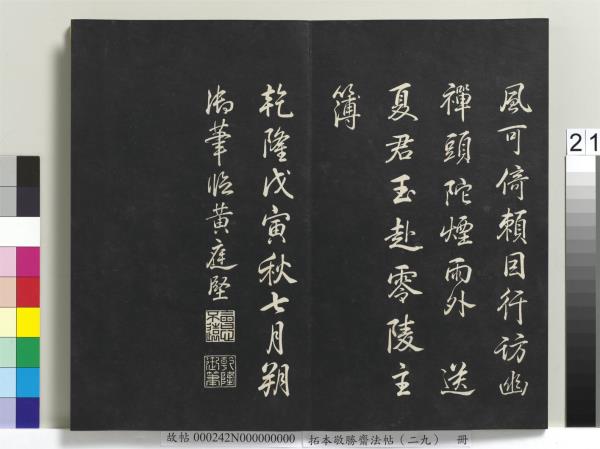 風可倚賴因行訪幽
禪頭陀煙雨外 送
夏君玉赴零陵主
簿
乾隆戊寅秋七月朔
御筆臨黃庭堅
乾隆
御筆
21
故帖 000242N000000000 拓本敬勝齋法帖(二九) 冊